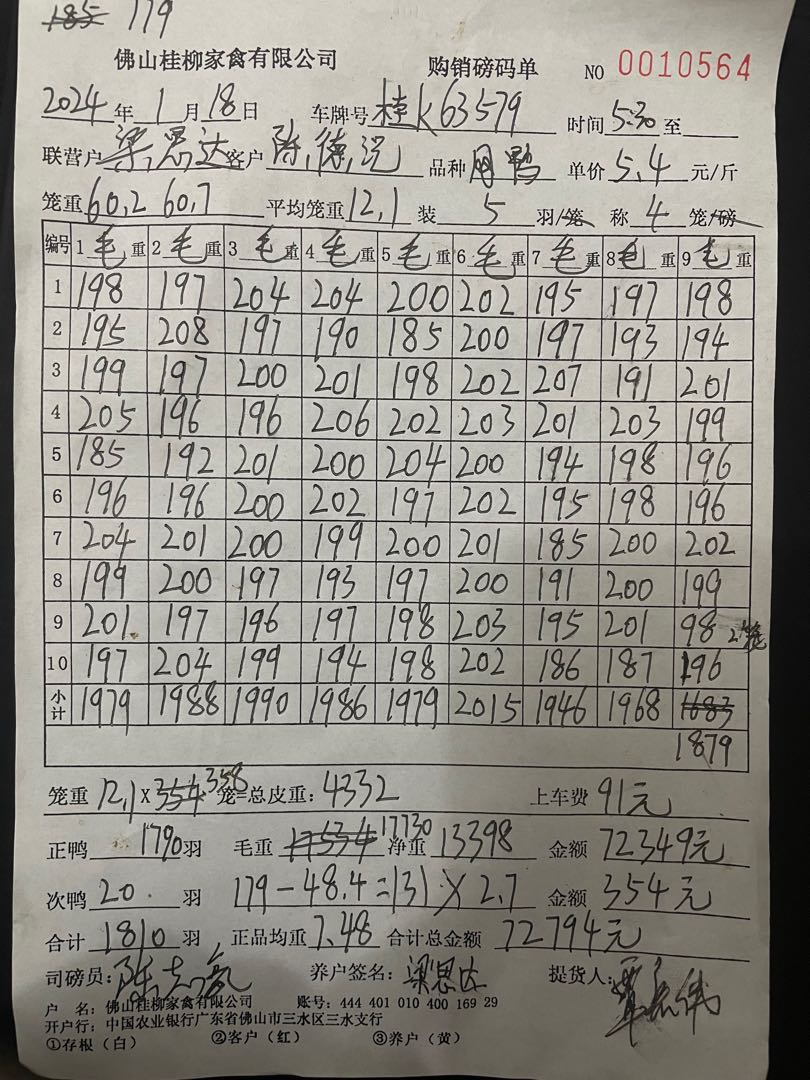 185 179
佛山桂柳家禽有限公司 购销磅码单 NO 0010564
2024年1月18日 车牌号 桂K63579 时间 5:30 至
联营户 梁思达 客户 陈德 品种 单价 5.4 元/斤
笼重 60.2 60.7 平均笼重 12.1 装 5 羽/笼 称 4 笼/磅
编号 1毛重 2毛重 3毛重 4毛重 5毛重 6毛重 7毛重 8毛重 9毛重
1 198 197 204 204 200 202 195 197 198
2 195 208 197 190 185 200 197 193 194
3 199 197 200 201 198 202 207 191 201
4 205 196 196 206 202 203 201 203 199
5 185 192 201 200 204 200 194 198 196
6 196 196 200 202 197 202 195 198 196
7 204 201 200 199 200 201 185 200 202
8 199 200 197 193 197 200 191 200 199
9 201 197 196 197 198 203 195 201 98 2笼
10 197 204 199 194 198 202 186 187 196
小计 1979 1988 1990 1986 1979 2015 1946 1968 1683
1879
笼重 12.1 X 354 358 笼=总皮重: 4332 上车费 91元
正鸭 1790 羽 毛重 17534 17730 净重 13398 金额 72349元
次鸭 20 羽 179-48.4=131 X 2.7 金额 354元
合计 1810 羽 正品均重 7.48 合计总金额 72794元
司磅员: 陈志 养户签名: 梁思达 提货人:
户 名: 佛山桂柳家禽有限公司 账号: 444 401 010 400 169 29
开户行: 中国农业银行广东省佛山市三水区三水支行
①存根（白） ②客户（红） ③养户（黄）